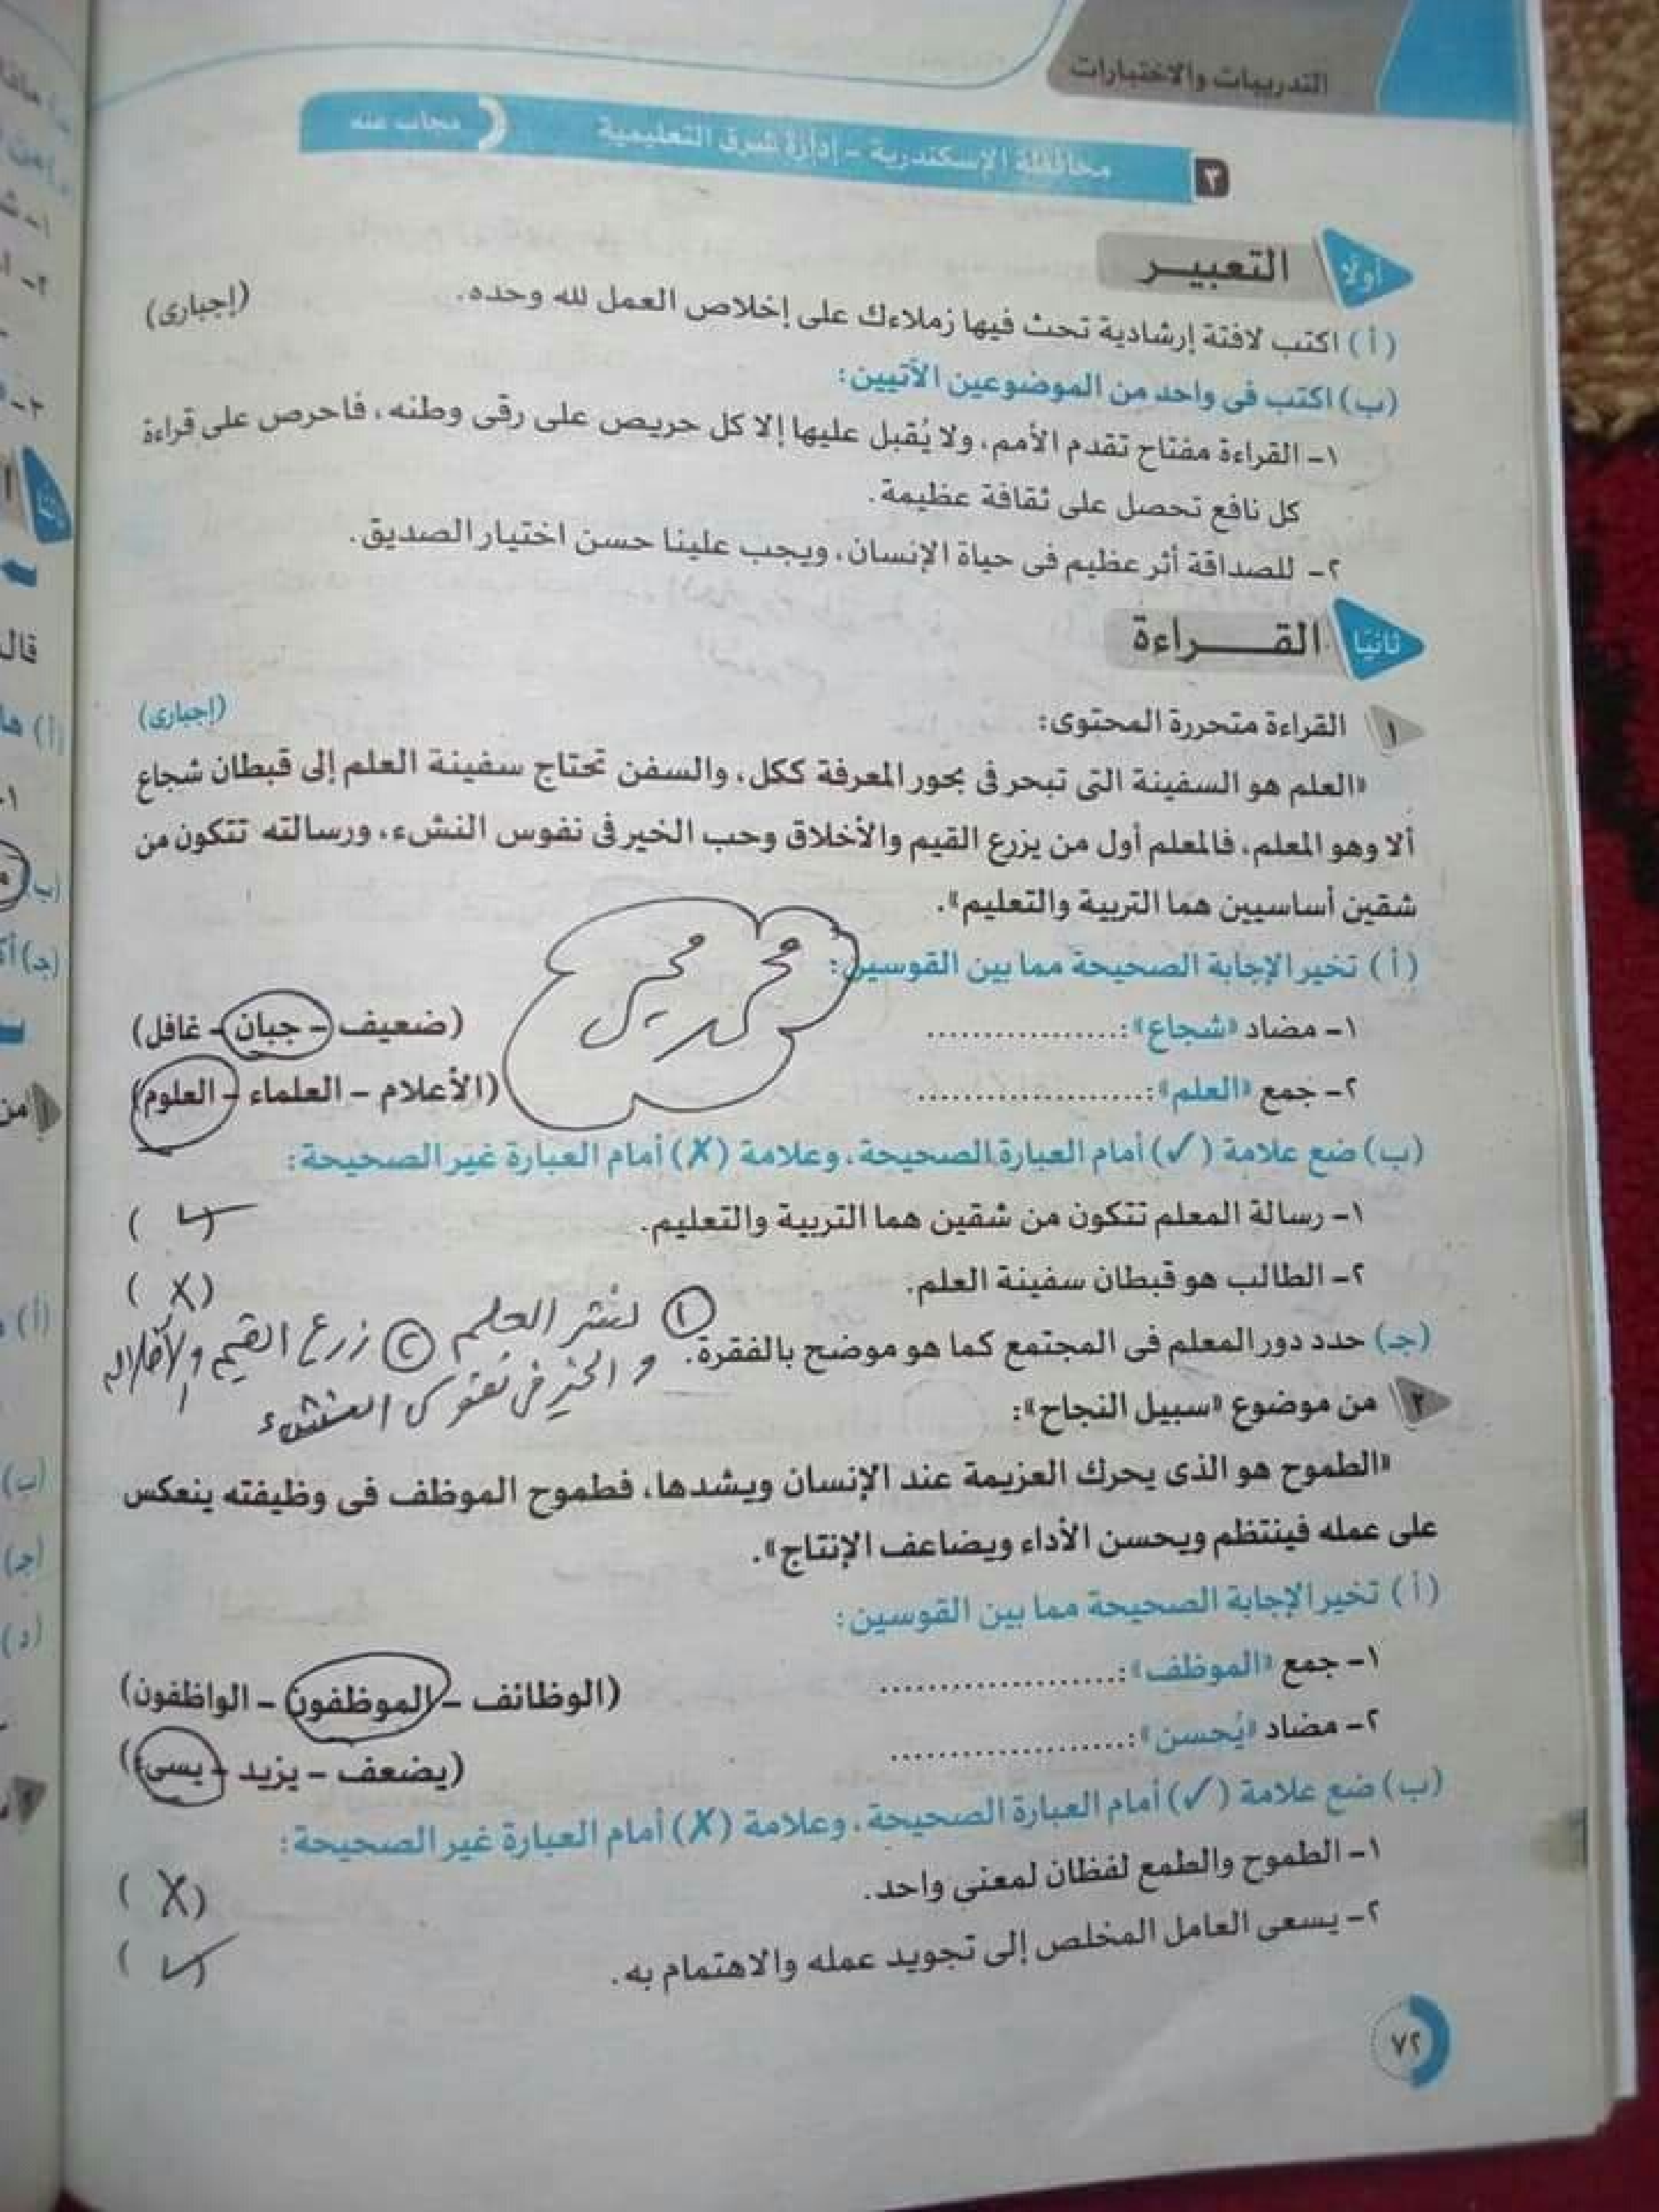 التدريبات والاختبارات
٣ محافظة الإسكندرية - إدارة شرق التعليمية مجاب عنه
أولًا التعبيـر
(أ) اكتب لافتة إرشادية تحث فيها زملاءك على إخلاص العمل لله وحده. (إجبارى)
(ب) اكتب فى واحد من الموضوعين الآتيين:
١- القراءة مفتاح تقدم الأمم، ولا يُقبل عليها إلا كل حريص على رقى وطنه، فاحرص على قراءة
كل نافع تحصل على ثقافة عظيمة.
٢- للصداقة أثر عظيم فى حياة الإنسان، ويجب علينا حسن اختيار الصديق.
ثانيًا القـــراءة
١ القراءة متحررة المحتوى: (إجبارى)
«العلم هو السفينة التى تبحر فى بحور المعرفة ككل، والسفن تحتاج سفينة العلم إلى قبطان شجاع
ألا وهو المعلم، فالمعلم أول من يزرع القيم والأخلاق وحب الخير فى نفوس النشء، ورسالته تتكون من
شقين أساسيين هما التربية والتعليم».
(أ) تخير الإجابة الصحيحة مما بين القوسين:
محمد
١- مضاد «شجاع»: .................. (ضعيف - جبان - غافل)
٢- جمع «العلم»: ...................... (الأعلام - العلماء - العلوم)
(ب) ضع علامة (✓) أمام العبارة الصحيحة، وعلامة (✗) أمام العبارة غير الصحيحة:
١- رسالة المعلم تتكون من شقين هما التربية والتعليم. (✓)
٢- الطالب هو قبطان سفينة العلم. (X)
(جـ) حدد دور المعلم فى المجتمع كما هو موضح بالفقرة.
① نشر العلم ② زرع القيم والأخلاق
و الخير فى نفوس النشء
٢ من موضوع «سبيل النجاح»:
«الطموح هو الذى يحرك العزيمة عند الإنسان ويشدها، فطموح الموظف فى وظيفته ينعكس
على عمله فينتظم ويحسن الأداء ويضاعف الإنتاج».
(أ) تخير الإجابة الصحيحة مما بين القوسين:
١- جمع «الموظف»: ...................... (الوظائف - الموظفون - الواظفون)
٢- مضاد «يُحسن»: ...................... (يضعف - يزيد - يسىء)
(ب) ضع علامة (✓) أمام العبارة الصحيحة، وعلامة (✗) أمام العبارة غير الصحيحة:
١- الطموح والطمع لفظان لمعنى واحد. (X)
٢- يسعى العامل المخلص إلى تجويد عمله والاهتمام به. (✓)
٧٢